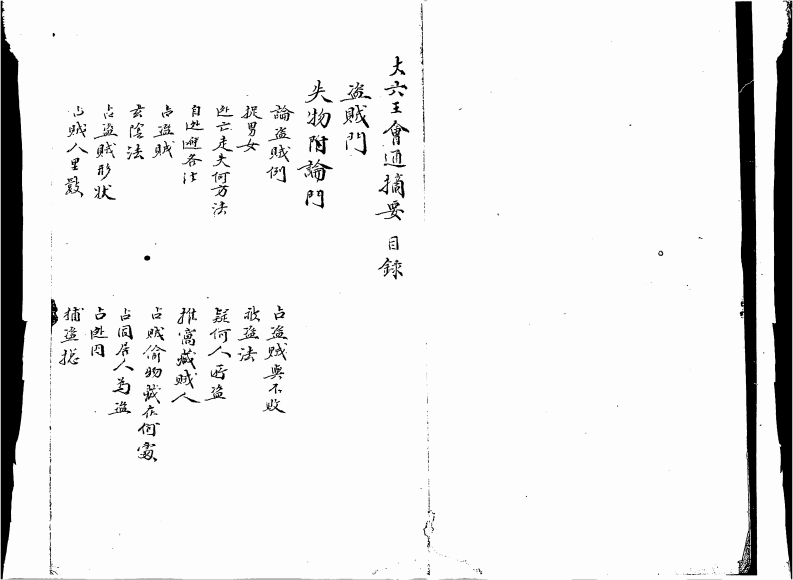 大六壬會通摘要 目錄
盜賊門
失物附論門
論盜賊例
占盜賊與不敗
捉男女
被盜法
逃亡走失何方法
疑何人所盜
自逃避各法
推窩藏賊人
占盜賊
占賊偷物藏在何處
玄陰法
占同居人為盜
占盜賊形狀
占逃囚
占賊人里數
捕盜總